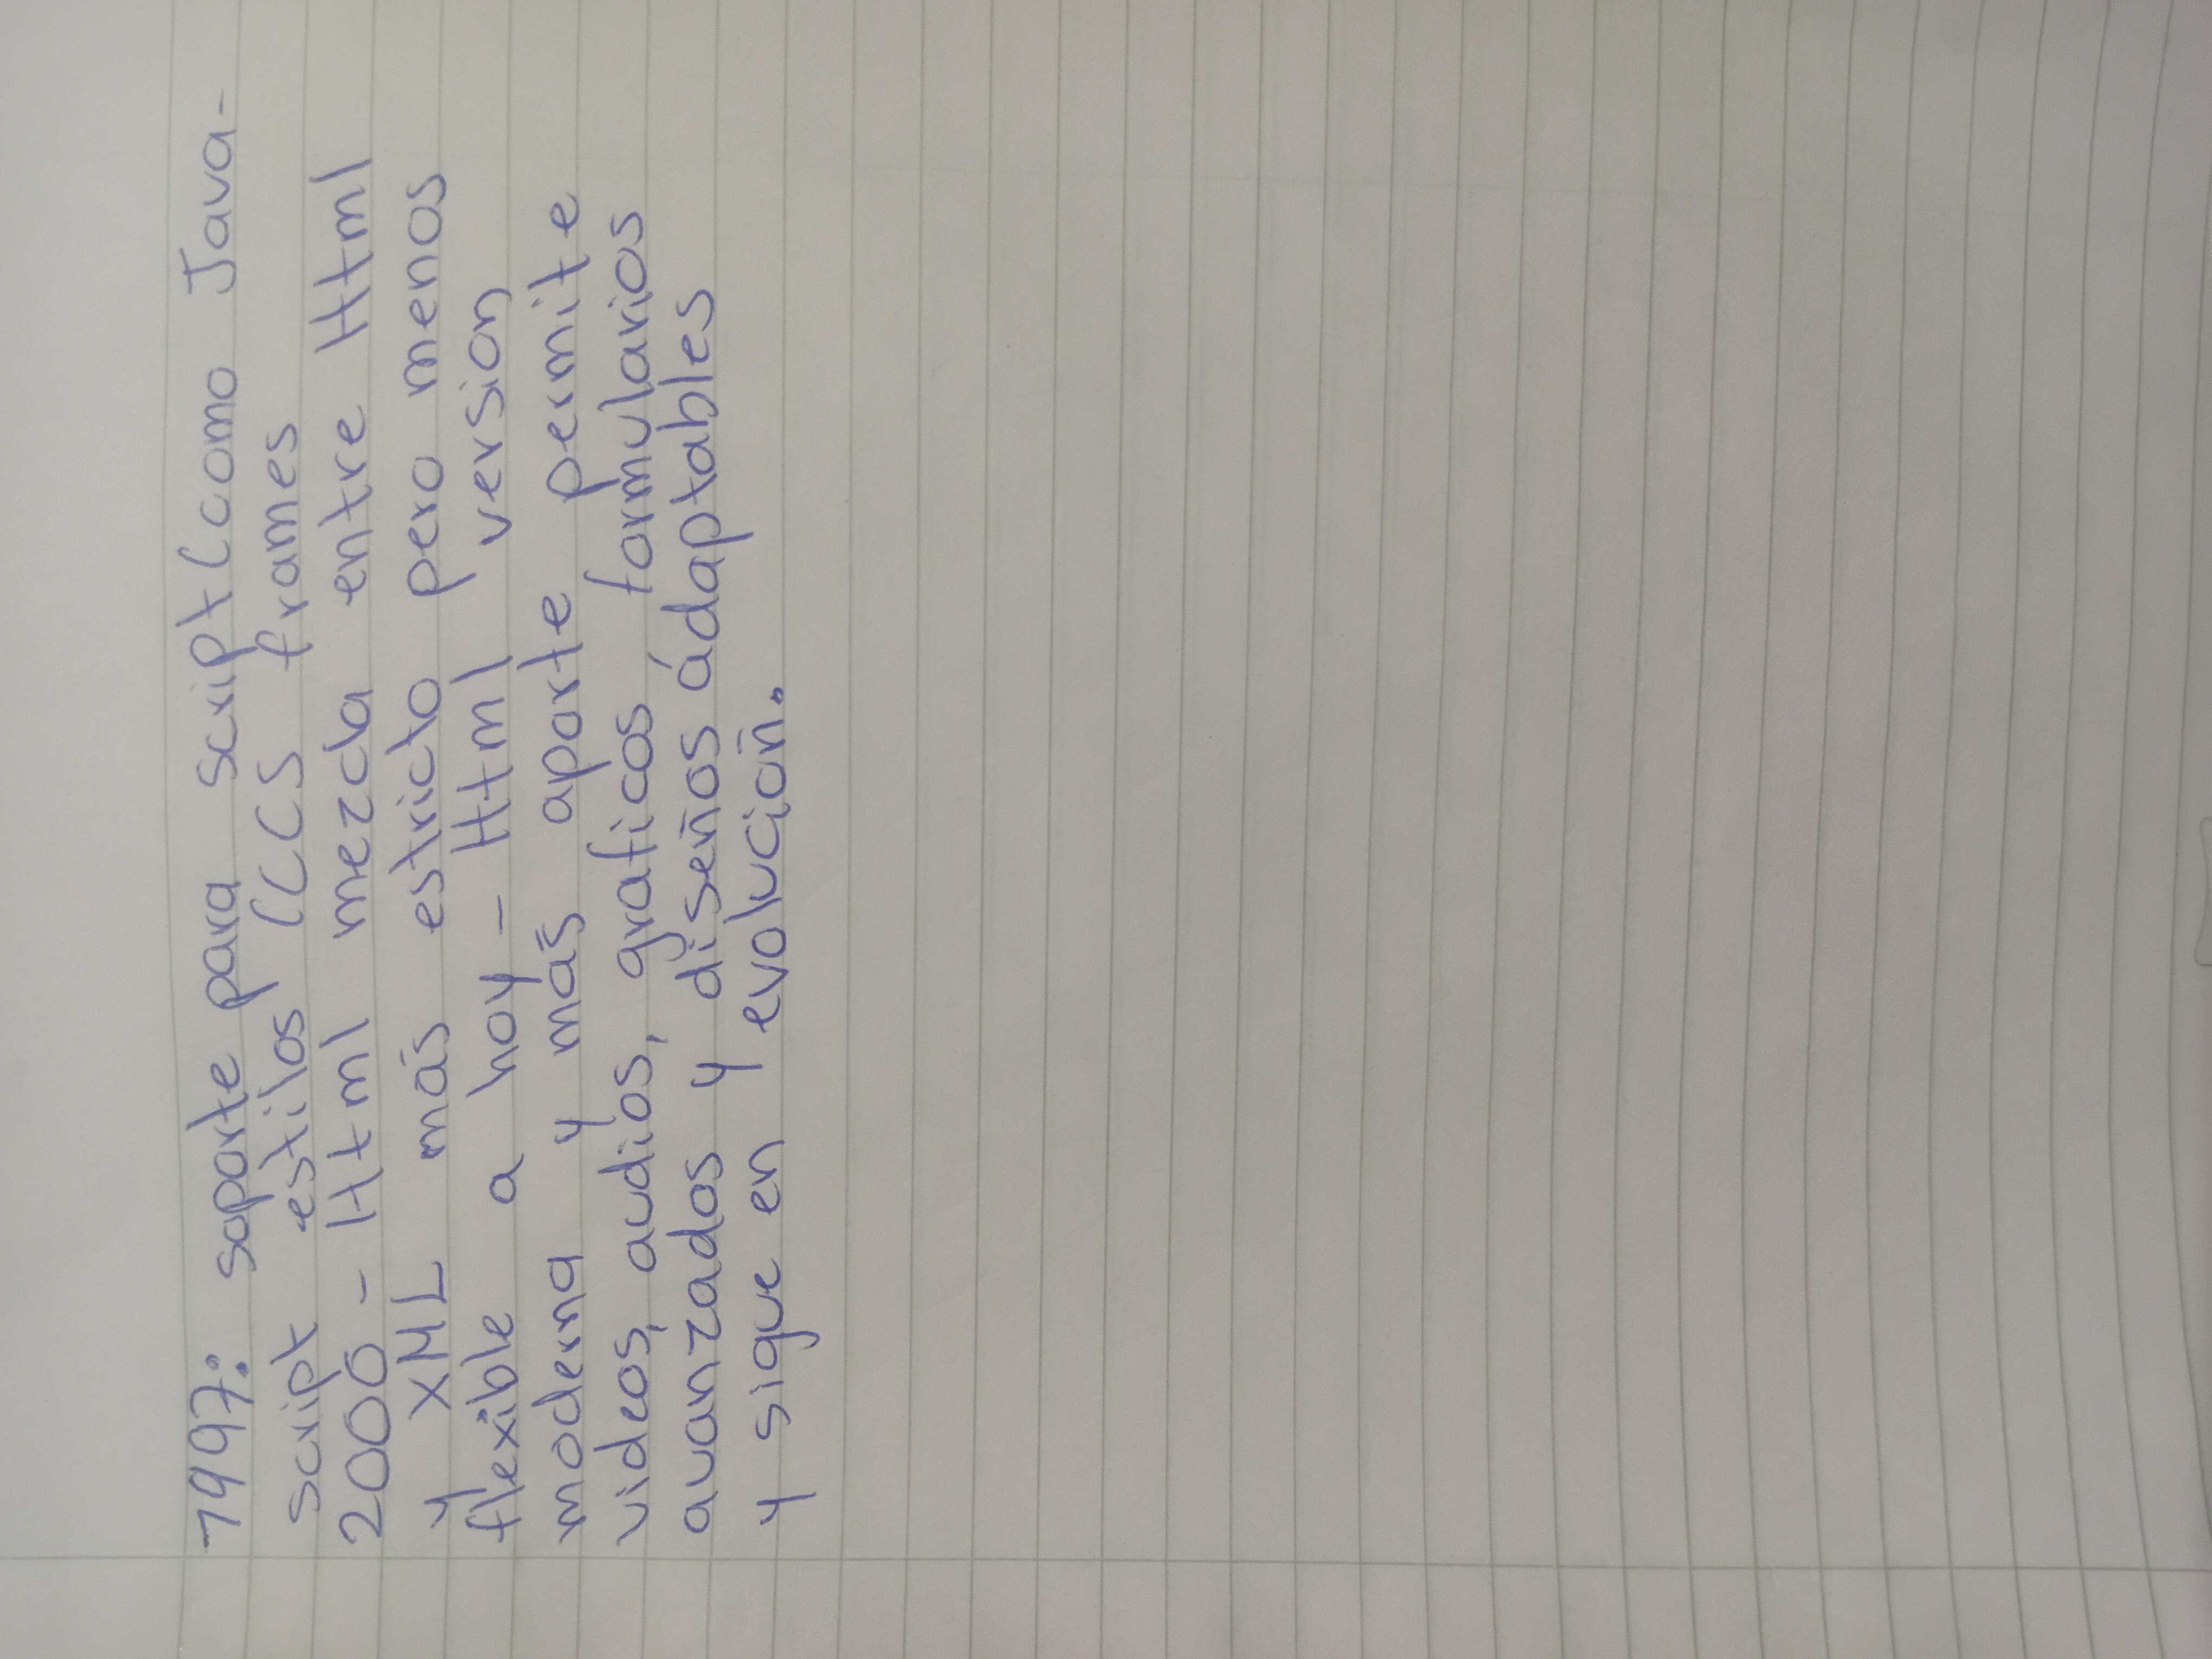 1997: soporte para script (como Java-
script estilos (CCS frames
2000 - Html mezcla entre Html
y XML más estricto pero menos
flexible a hoy - Html version
moderna y más aporte permite
videos, audios, graficos formularios
avanzados y diseños ádaptables
y sigue en evolución.